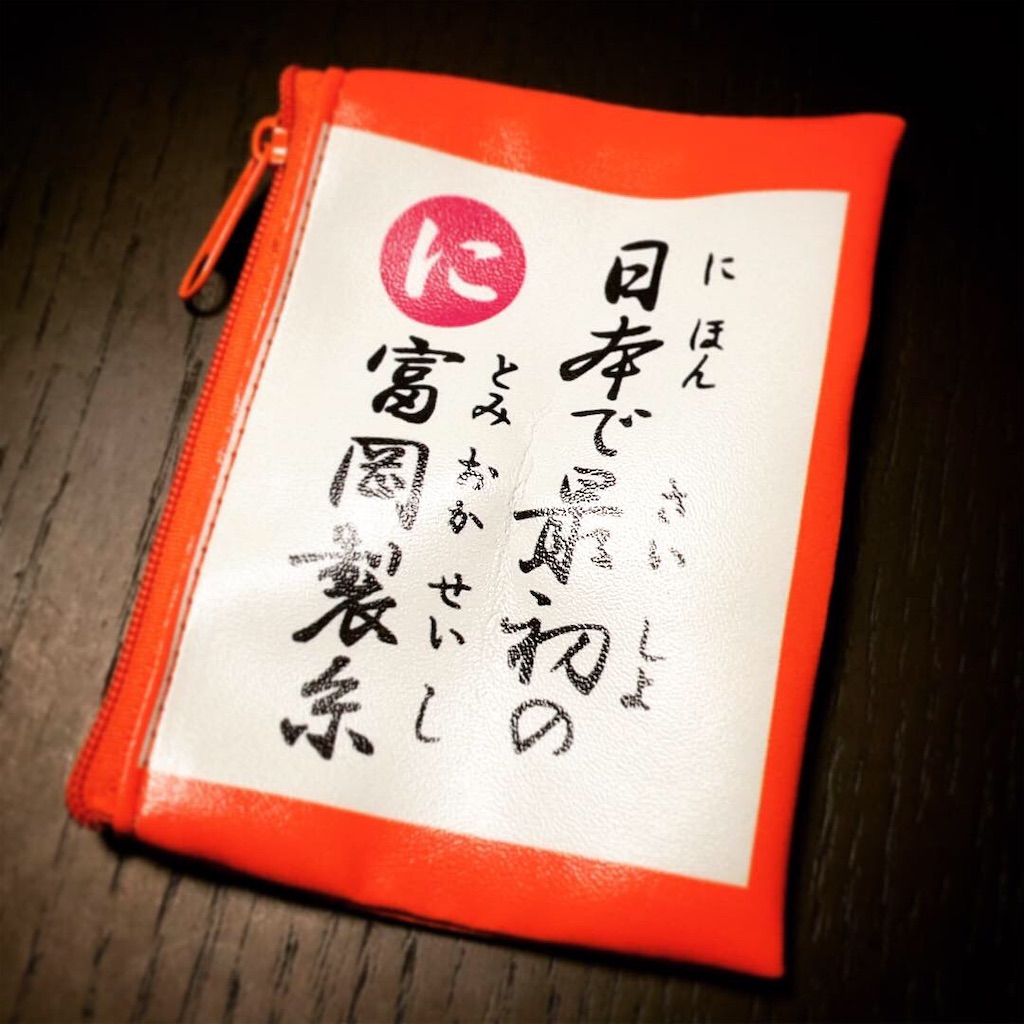 にほん さいしょ
日本で最初の
とみおかせいし
に
富岡製糸